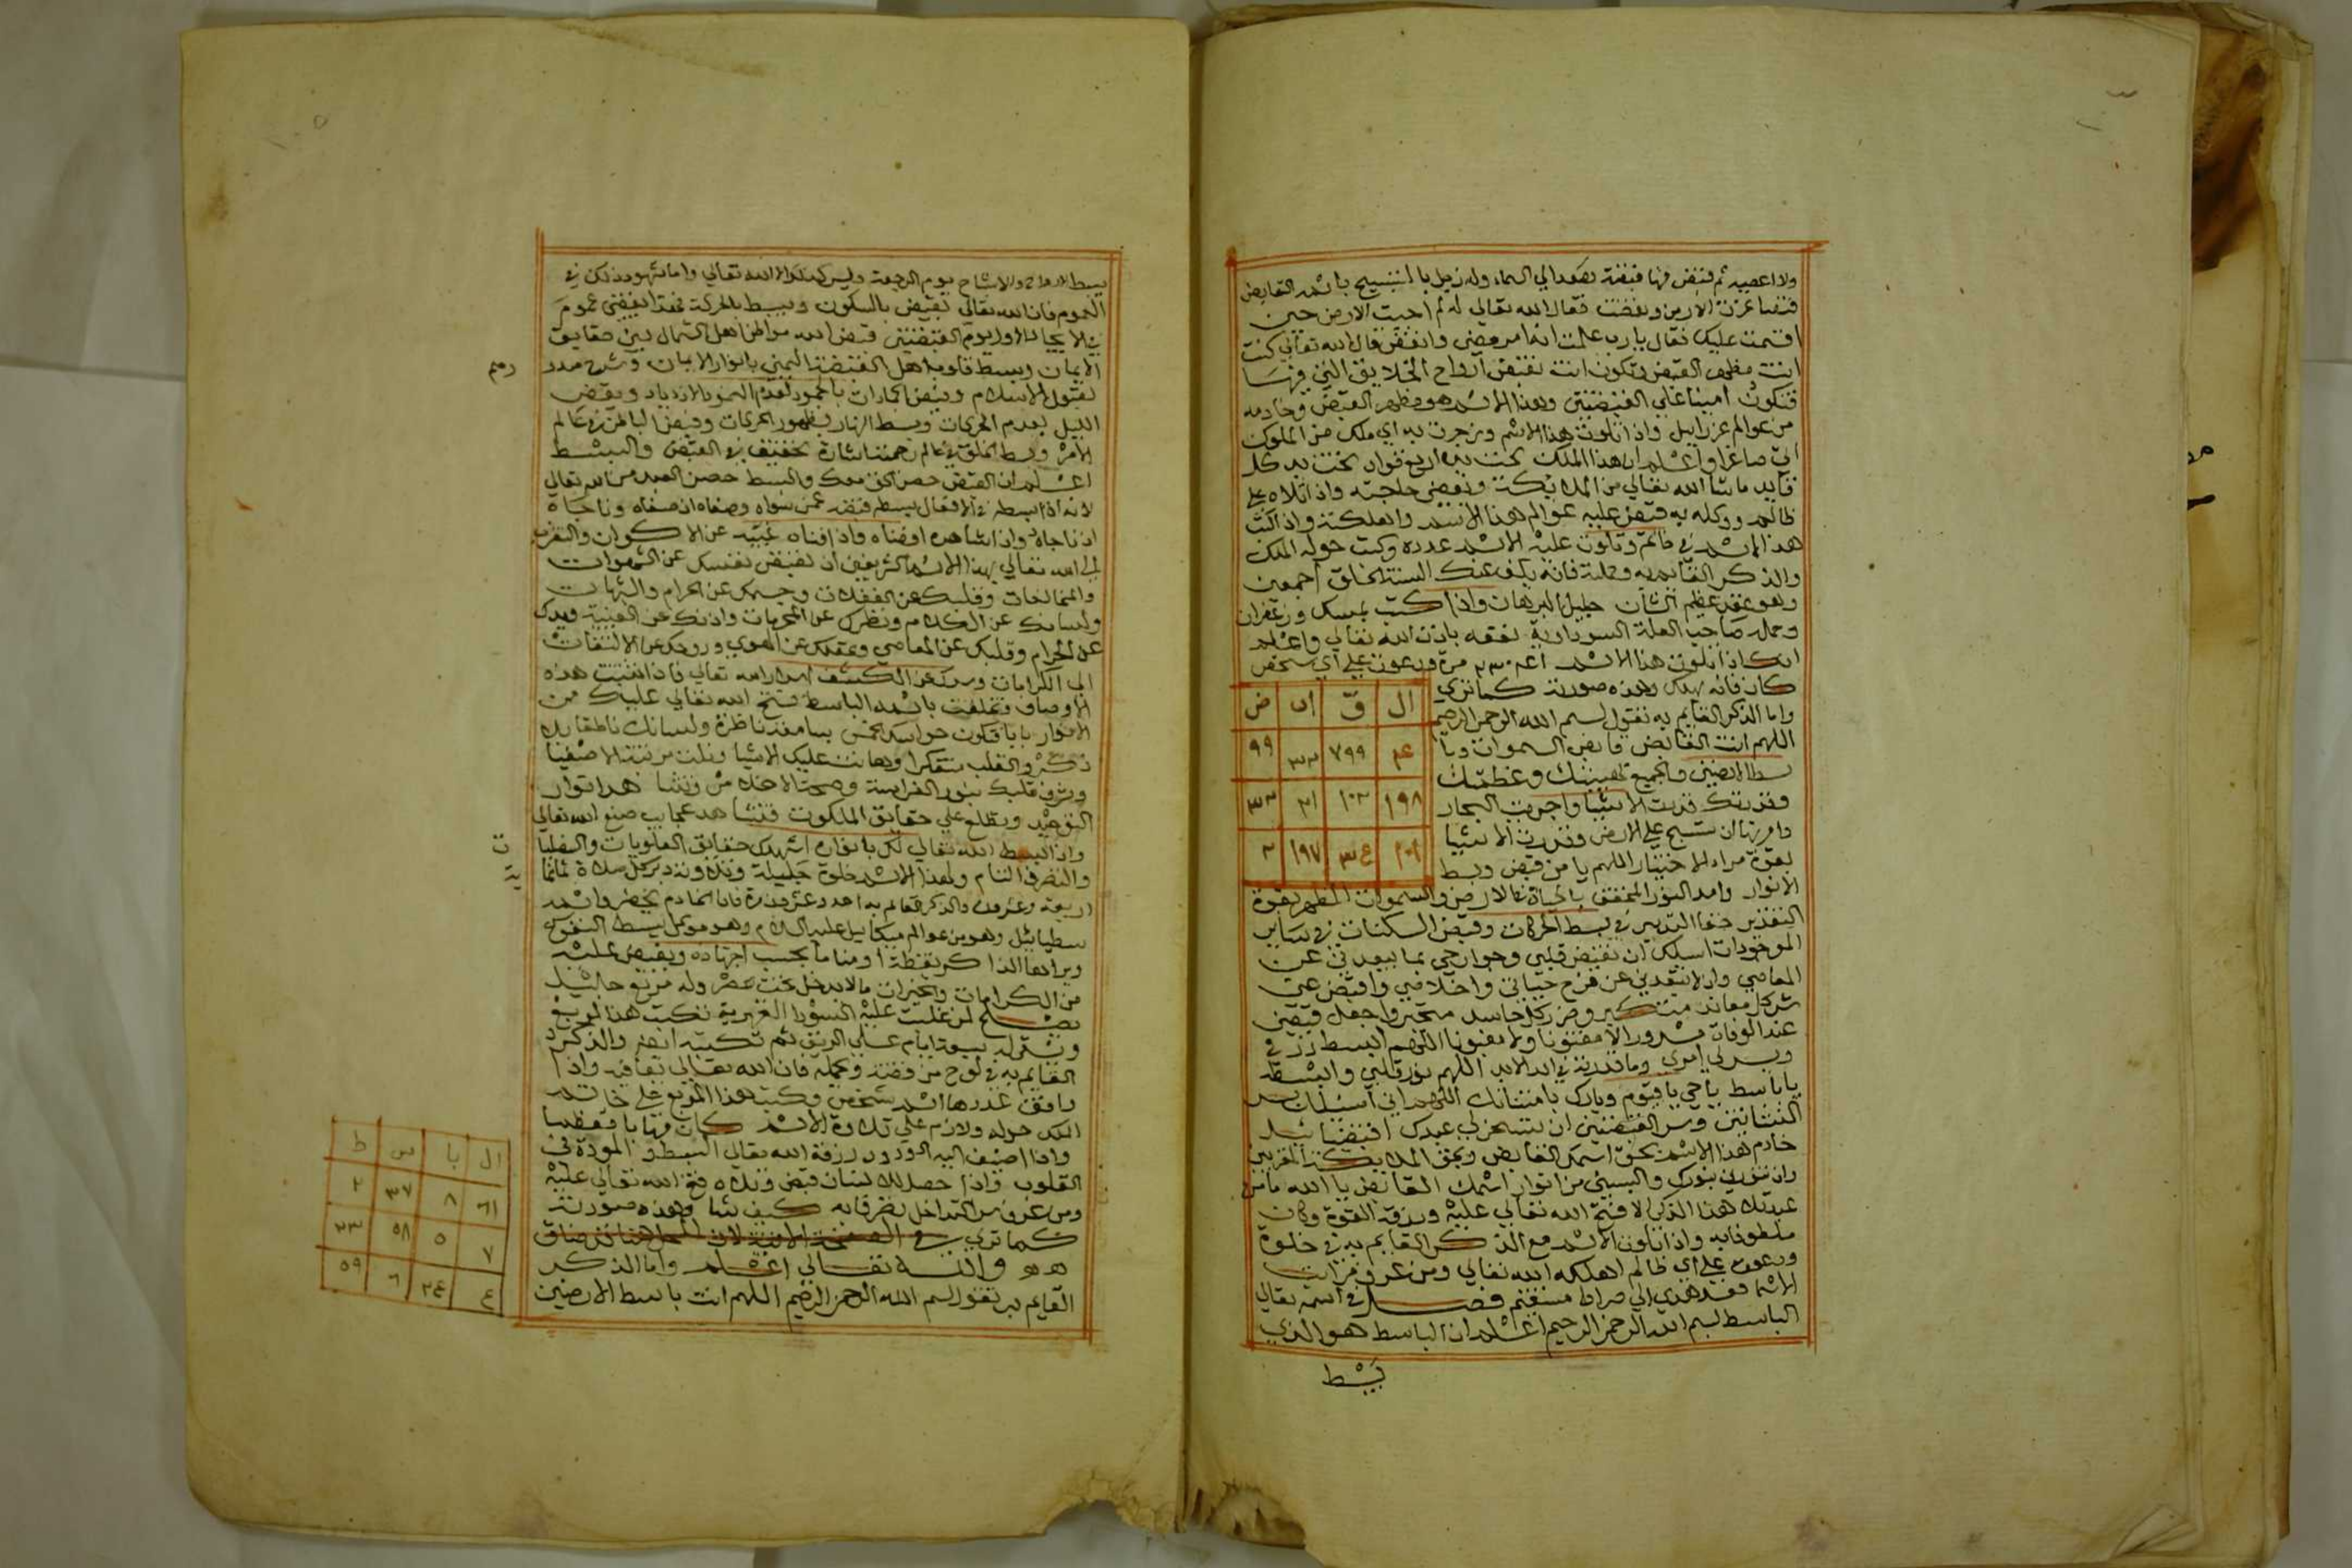 ولا اعصيه ثم قبض منها قبضة فصعد الي السماء وله زجل بالتسبيح باسمه القابض
فقال الله تعالي له لم اجبت الارض حين
اقسمت عليك فقال يا رب علمت انه امر مضي قال الله تعالي كنت
انت مظهر القبض وتكون انت تقبض ارواح الخلايق التي فيها
فتكون امينا علي القبضتين وهذا الاسم هو مظهر القبض وخادمه
من عوالم عزراييل واذا تلوت هذا الاسم وزجرت به اي ملك من الملوك
اتي صاغرا واعلم ان هذا الملك تحت يده اربع قواد تحت يد كل
قايد ما شا الله تعالي من الملايكة ويقضي حاجته واذا تلاه علي
ظالم ووكله به قبض عليه عوالم هذا الاسم واهلكته واذا كتب
هذا الاسم في خاتم وتلوت عليه الاسم عدده وكتبت حوله الملك
والذكر القايم به وحمله فانه يكف عنك السنة الخلق اجمعين
وهو عقد عظيم الشان جليل البرهان واذا كتب بمسك وزعفران
وحمله صاحب العلة السوداوية نفعه باذن الله تعالي واعلم
انك اذا تلوت هذا الاسم مرة ودعوت علي اي شخص
كان فانه يهلك وهذه صورته كما تري
ال قَ اب ض
واما الذكر القايم به تقول بسم الله الرحمن الرحيم
٧٩٩ ٩٩
اللهم انت القابض قابض السموات ويا
باسط الارضين والجميع لهيبتك وعظمتك
١٩٨ ١٠٢ ٣١ ٣٣
وقدرتك قدرت الاشيا واجريت البحار
وامرتها ان تسيح علي الارض وقدرت الاشيا
١٩٧ ٢
بقوة مراد الاختيار اللهم يا من قبض وبسط
الانوار وامد النور بالحياة في الارض والسموات المظهر بقوة
التقدير خفا التدبير في بسط الحركات وقبض السكنات في ساير
الموجودات اسئلك ان تقبض قلبي وجوارحي بما يبعدني عن
المعاصي وان لا تبعدني عن فرح حياتي واخلاقي واقبض عني
شر كل معاند متكبر وضرر كل حاسد متجبر واجعل قبضي
عند الوفات مسرورا لا مفتونا ولا مغبونا اللهم ابسط رزقي
ويسر لي امري وما قدرته في ابد الابد اللهم نور قلبي وابسطه
يا باسط يا حي يا قيوم وبارك يا منان اللهم اني اسئلك بسر
النشاتين وسر القبضتين ان تسخر لي عبدك
خادم هذا الاسم بحق اسمك القابض وبحق الملايكة المقربين
وان تنورني بنورك والبسني من انوار اسمك القابض يا الله ما من
عبد تلا هذا الذكر الا فتح الله تعالي عليه ورزقه القوة وكان
ملطوفا به واذا تلوت الاسم مع الذكر القايم به في خلوة
ودعوت علي اي ظالم اهلكه الله تعالي ومن عرف مراتب
الاسما فقد هدي الي صراط مستقيم فصل في اسمه تعالي
الباسط بسم الله الرحمن الرحيم اعلم ان الباسط هو الذي
يبسط
يبسط الارواح والاشباح يوم الرجعة وليس كذلك الا الله تعالي واما شهود ذلك في
العموم فان الله تعالي يقبض بالسكون ويبسط بالحركة
يوم القبضتين قبض الله مواطن اهل الشمال بين حقايق
الايمان وبسط قلوب اهل القبضة اليمني بانوار الايمان وشرح صدر
لقبول الاسلام وقبض الجمادات بالجمود لعدم النمو والازدياد ويقبض
الليل بعدم الحركات وبسط النهار بظهور الحركات وقبض الباطن في عالم
الامر وبسط الخلق في عالم رحمته اشارة تحقيق في القبض والبسط
اعلم ان القبض حصن الحق معك والبسط حصن العبد من الله تعالي
لانه اذا بسطه في الافعال بسطه قبضه عمن سواه وصفاه ان صفاه وناجاه
ان ناجاه واذا شاهده افناه واذا افناه غيبه عن الاكوان والتقرب
الي الله تعالي بهذا الاسم اكثر يعني ان تقبض نفسك عن الشهوات
والمخالفات وقلبك عن الغفلات وجسمك عن الحرام والشبهات
ولسانك عن الكلام ونظرك عن المحرمات واذنك عن الغيبة ويدك
عن الحرام وقلبك عن المعاصي وعقلك عن الهوي وروحك عن الالتفات
الي الكرامات وسرك عن الكشف اسرار الله تعالي فاذا اتقنت هذه
الاوصاف وتخلقت باسمه الباسط فتح الله تعالي عليك من
الانوار بابا فتكون حواسك الخمس سامعة ناظرة ولسانك ناطقا بالله
ذكره والقلب متفكرا وهانت عليك الاشيا ونلت مرتبة الاصفيا
ويشرق قلبك بنور الفراسة وصحة الاخلاص وتشاهد انوار
التوحيد ويطلع علي حقايق الملكوت فتشاهد عجايب صنع الله تعالي
واذا بسط الله تعالي لك بانواره اشهدك حقايق العلويات والسفليات
والتصرف التام ولهذا الاسم خلوة جليلة وتلاوته دبر كل صلاة
اربعة وعشرون والذكر القايم به احد وعشرون مرة فان الخادم يحضر واسمه
بسطياييل وهو من عوالم ميكاييل عليه السلام وهو موكل ببسط النفوس
ويراها الذاكر يقظة او مناما بحسب اجتهاده ويفيض عليه
من الكرامات والخيرات مالا يدخل تحت حصر وله مربع جليل
يصلح لمن غلبت عليه السودا القهرية تكتب هذا المربع
ويشربه سبعة ايام علي الريق ثم تكتبه ايضا والذكر
القايم به في لوح من فضة وتحمله فان الله تعالي يعافيه واذا
وافق عددها اسم شخص وكتب هذا المربع علي خاتم
الملك حوله ولازم علي تلاوة الاسم كان مهابا معظما
واذا اضيف اليه الودود رزقه الله تعالي البسط والمودة في
القلوب واذا حصل لك لسان قبض وتلاه فتح الله تعالي عليه
ومن عرف سر التداخل تصرف به كيف شا وهذه صورته
كما تري
والله تعالي اعلم واما الذكر
القايم به تقول بسم الله الرحمن الرحيم اللهم انت باسط الارضين
ال با س ط
٦١ ٨ ٣٧ ٢
٧ ٥ ٥٨ ٣٣
٤ ٣٤ ٦ ٥٩